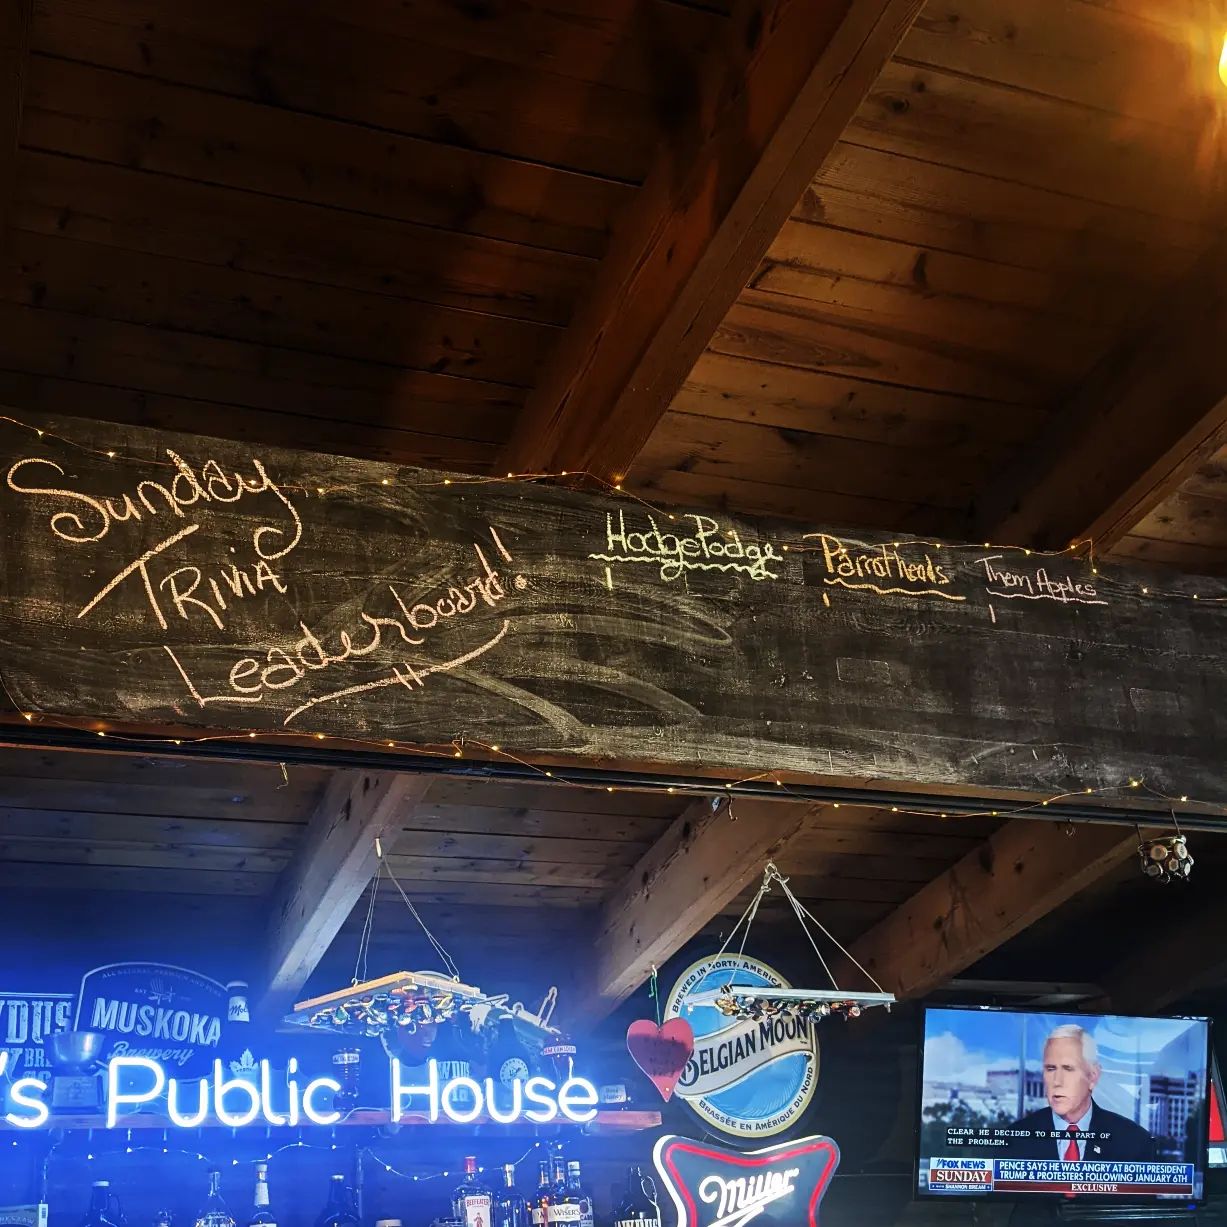 Sunday
Trivia
Leaderboard!
HodgePodge
Parrotheads
Them Apples
ALL NATURAL
MUSKOKA
Brewery
's Public House
BREWED IN NORTH AMERICA
BELGIAN MOON
BRASSÉE EN AMÉRIQUE DU NORD
Miller
BEEFEATER
WISER'S
CLEAR HE DECIDED TO BE A PART OF
THE PROBLEM.
FOX NEWS
SUNDAY
SHANNON BREAM
PENCE SAYS HE WAS ANGRY AT BOTH PRESIDENT
TRUMP & PROTESTERS FOLLOWING JANUARY 6TH
EXCLUSIVE